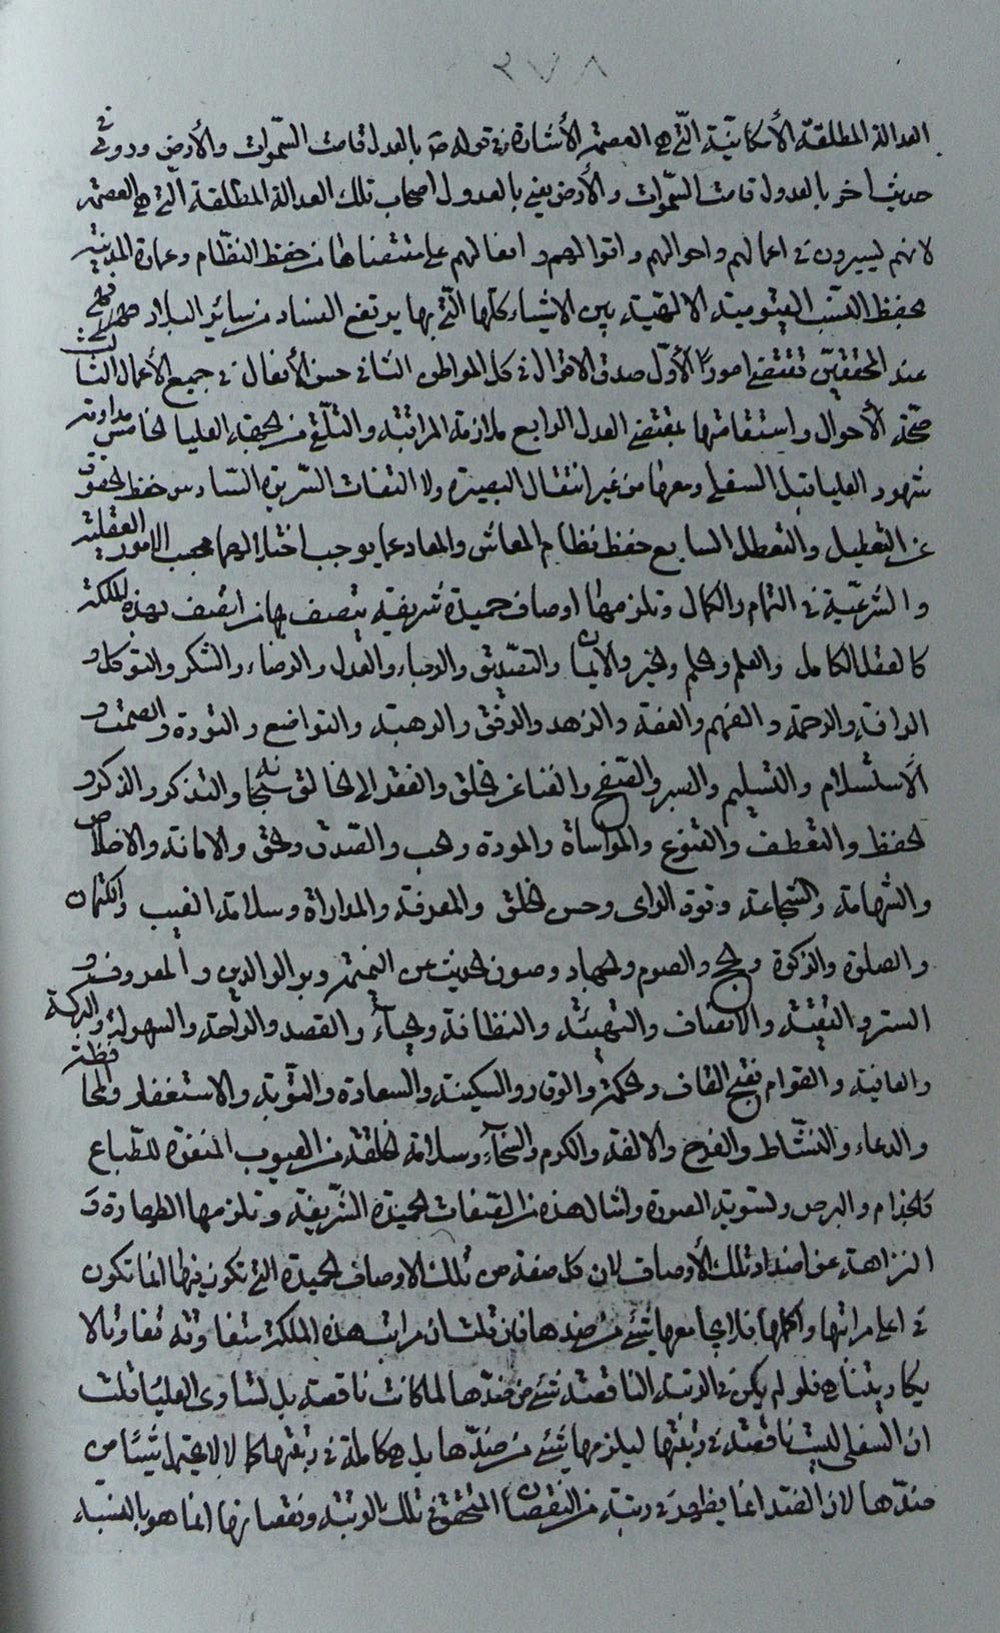 ٢٧٨
العدالة المطلقة الأمكانيّة الّتي هي العصمة الأشارة في قوله ص بالعدل قامت السّموات والأرض وروي في
حديث اخر بالعدول قامت السّموات والأرض يعني بالعدول اصحاب تلك العدالة المطلقة الّتي هي العصمة
لانهم يسيرون في اعمالهم واحوالهم واقوالهم وافعالهم على مقتضاها من حفظ النظّام وعمارة المدينة
بحفظ النسب القيّومية الالهيّة بين الاشياء كلّها الّتي بها يرتفع الفساد من سائر البلاد فهي
عند المحققيّن تقتضي امورًا الأوّل صدق الاقوال في كل المواطن الثاني حسن الأفعال في جميع الأعمال الثالث
صحّة الأحوال واستقامتها بمقتضى العدل الرابع ملازمة المراقبة والتلقّي من الجهة العليا الخامس مداومة
شهود العليا قبل السفلى ومعها من غير انتقال البصيرة ولا التفات السّريرة السّادس حفظ الحقوق
عن التعطيل والتعطل السابع حفظ نظام المعاش والمعاد عما يوجب اختلالهما بحسب الامور العقلية
والشرعيّة في التمام والكمال وتلزمها اوصاف حميدة شريفة يتصف بها من اتصف بهذه الملكة
كالعقل الكامل والعلم والحلم والخير والأيمان والتصديق والرجاء والعدل والرضاء والشكر والتوكل و
الرافة والرحمة والفهم والعفة والزهد والرفق والرهبة والتواضع والتؤدة والصمت و
الأستسلام والتسليم والصبر والصّفح والغنا عن الخلق والفقر الى الخالق سبحانه والتذكر والذكر و
الحفظ والتعطف والقنوع والمواساة والمودة والحب والصّدق والحق والامانة والاخلاص
والشهامة والشجاعة وقوة الراى وحسن الخلق والمعرفة والمداراة وسلامة الغيب والكتمان
والصلوة والزكوة والحج والصوم والجهاد وصون الحديث عن النميمة وبر الوالدين والمعروف و
الستر والتقيّة والانصاف والتهيئة والنظافة والحياء والقصد والراحة والسهولة والبركة
والعافية والقوام بفتح القاف والحكمة والوقار والسكينة والسعادة والتّوبة والاستغفار والمحافظة
والدعاء والنشّاط والفرح والالفة والكرم والسخآء وسلامة الخلقة من العيوب المنفرة للطّباع
كالجذام والبرص وتسوية الصورة وامثال هذه من الصّفات الحميدة الشّريفة وتلزمها الطهارة و
النزاهة عن اضداد تلك الأوصاف لان كل صفة من تلك الاوصاف الحميدة التي تكون فيها انما تكون
في اعلى مراتبها واكملها فلا يجامعها شيئ من ضدها فان قلت ان مراتب هذه الملكة متفاوتة تفاوتًا لا
يكاد يتناهى فلو لم يكن في الرتبة الناقصة شيئ من ضدّها لما كانت ناقصة بل لتساوى العليا قلت
ان السفلى ليست ناقصة في رتبتها ليلزمها شيئ من ضدّها بل هي كاملة في رتبتها كما لا يجتمع شيئًا من
ضدّها لان الضّد انما يظهر في رتبة من النقصان المتحقق في تلك الرتبة ونقصانها انما هو بالنسبة